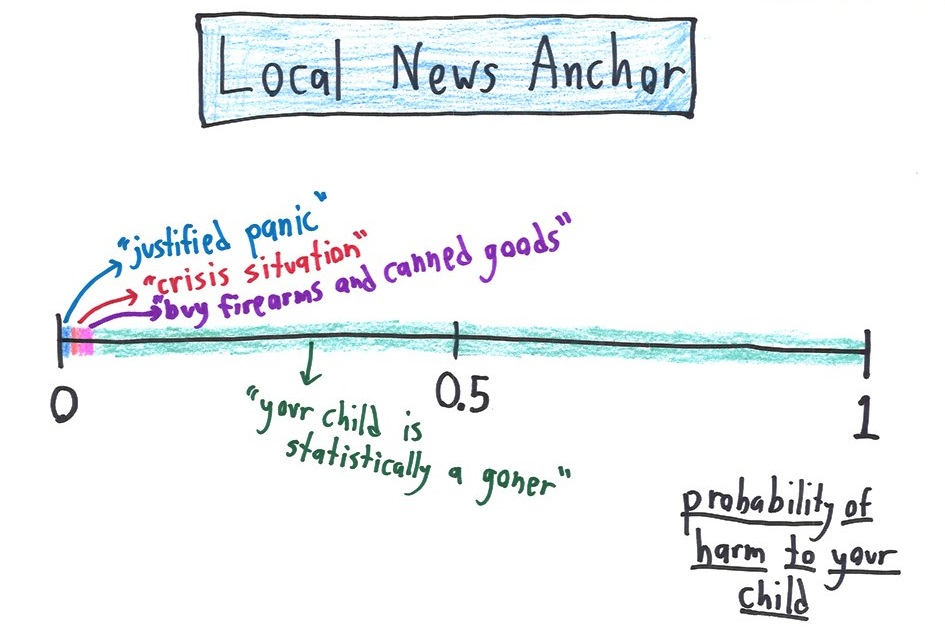 Local News Anchor
"justified panic"
"crisis situation"
"buy firearms and canned goods"
0
0.5
1
"your child is
statistically a goner"
probability of
harm to your
child